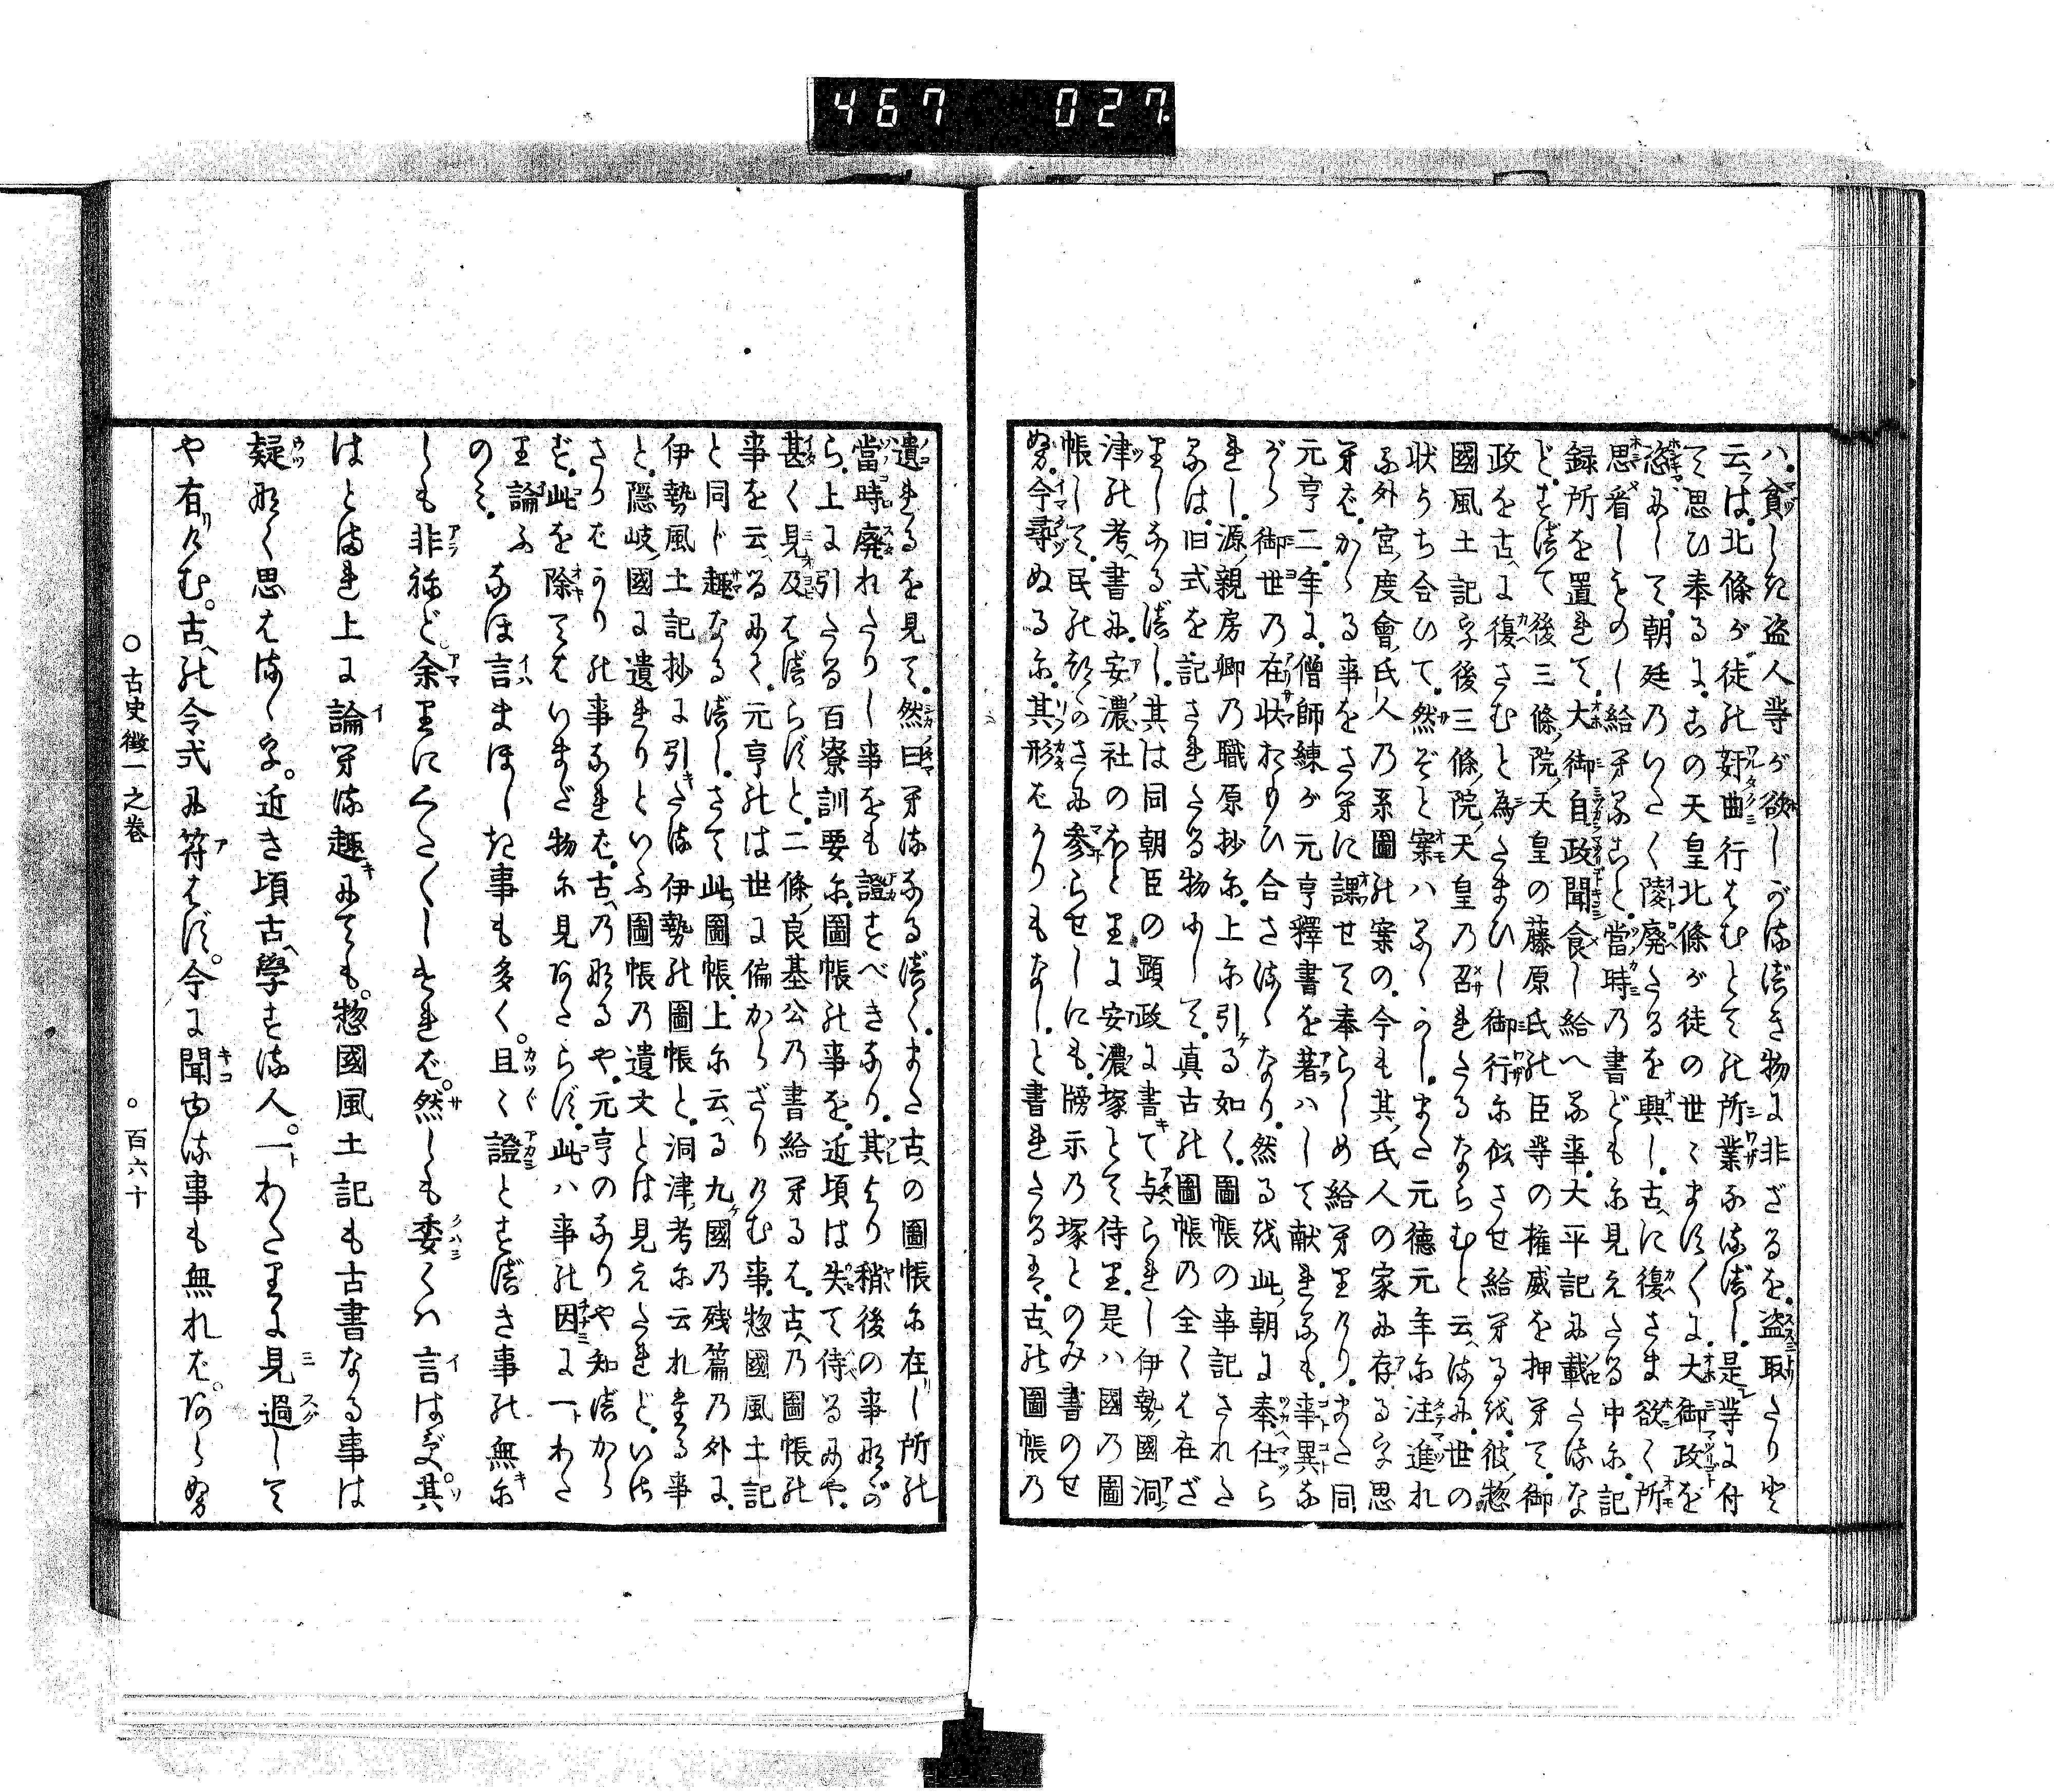 467 027
ハ。貪しき盗人等が欲しがる べき物に非ざるを。盗取たりと
云は。北條が徒の奸曲行はむとての所業なるべし。是等に付
て思ひ奉るに。この天皇北條が徒の世々まにまに。大御政を
恣にして。朝廷のいたく陵廢たるを興し。古に復さま欲く所
思看しゝの給ふこと。當時の書どもに見えたる中に。記
録所を置れて。大御自政聞食し給へる事。大平記に載たるな
ど。すべて後三條院天皇の藤原氏の臣等の権威を押へて。御
政を古に復さむと為たまひし御行に似させ給へるを。彼惣
國風土記を後三條院天皇の召れたるならむと云るに。世の
状うち合ひて。然ぞと案ハるゝかし。また元德元年に注進れ
る外宮度會氏人の系圖の案の。今も其氏人の家に存るを思
ふに。かゝる事をさへに課せて奉らしめ給へりけり。また同
元亨二年に。僧師練が元亨釋書を著ハして献れるも。事異な
がら御世の在状おもひ合さるゝなり。然るを此朝に奉仕ら
れし。源親房卿の職原抄に。上に引る如く。圖帳の事記された
るは。旧式を記されたる物にして。真古の圖帳の全くは在ざ
りしなるべし。其は同朝臣の顕政に書て与へられし伊勢國洞
津の考書に。安濃社のほとりに安濃塚とて侍り。是ハ國の圖
帳して。民のためのさに参らせしにも。牓示の塚とのみ書のせ
ぬ。今尋ぬるに。其形ばかりもなし。と書れたるは。古の圖帳の
遺れるを見て。然曰へるなるべく。また古の圖帳に在し所の
當時廢れたりし事をも證すべきなり。其より稍後の事ながら
ら。上に引たる百寮訓要に。圖帳の事を。近頃は失て侍るにや。
甚く見及はべらずと。二條良基公の書給へるは。古の圖帳の
事を云るにて。元亨のは世に偏からざりけむ事。惣國風土記
と同じ趣なるべし。さて此圖帳。上に云る九國の残篇の外に。
伊勢風土記抄に引たる伊勢の圖帳と。洞津考に云れたる事
と。隠岐國に遺れりといふ圖帳の遺文とは見えたれど。いは
さりばかりの事なれば。古のなるや。元亨のなりや知べから
ず。此を除てはいまだ物に見あたらず。此ハ事の因に一わた
り論ふ なほ言まほしき事も多く。且々證とすべき事の無に
のみ。
しも非ねど。余りにくだくだしければ。然しも委くハ言はず。其
はとまれ上に論へる趣にても。惣國風土記も古書なる事は
疑なく思はるゝを。近き頃古學する人。一わたりに見過して
や有けむ。古の令式に符はず。今に聞ゆる事も無れば。あらぬ
○古史徴一之巻 ○百六十